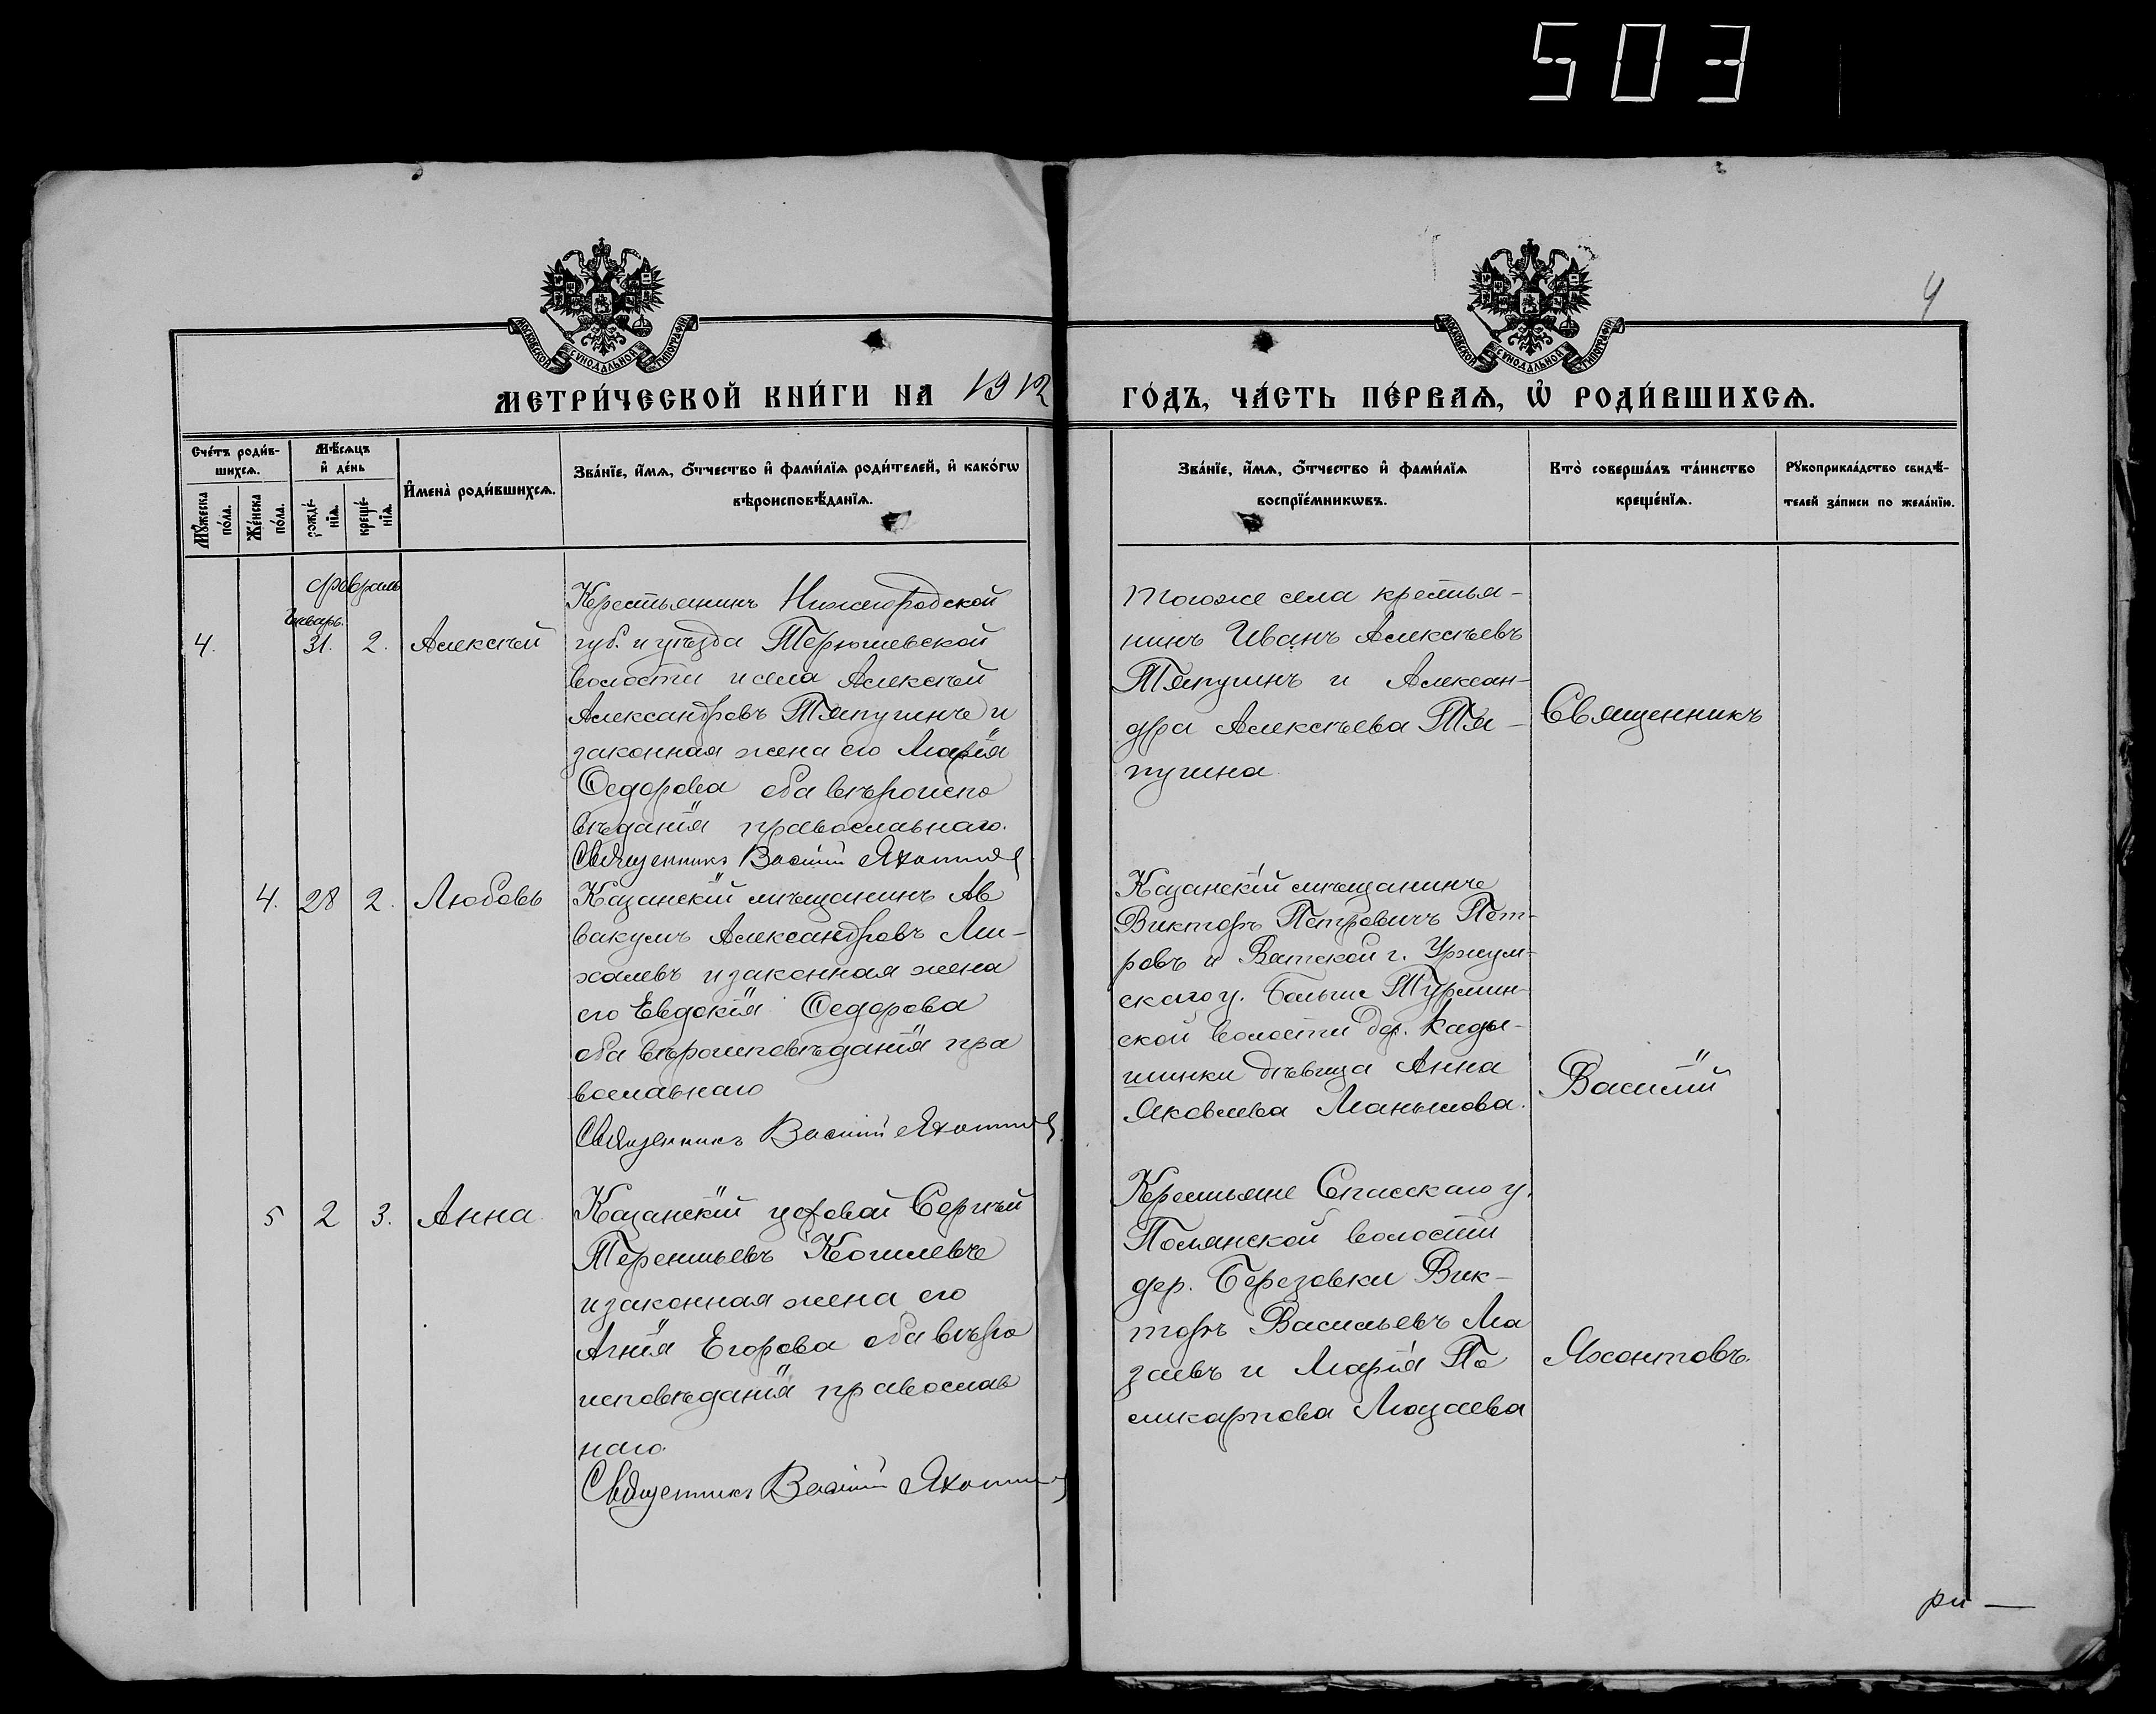 503
4
МОСКОВСКОЙ СУНОДАЛЬНОЙ ТИПОГРАФІИ
МОСКОВСКОЙ СУНОДАЛЬНОЙ ТИПОГРАФІИ
МЕТРИ́ЧЕСКОЙ КНИ́ГИ НА 1912
ГО́ДЪ, ЧА́СТЬ ПЕ́РВАѦ, Ѡ҆ РОДИ́ВШИХСѦ.
Сче́тъ роди́в-
шихсѧ.
Мꙋ́жеска по́ла.
Же́нска по́ла.
Мѣ́сѧцъ
и҆ де́нь
рожде́-
нїѧ.
креще́-
нїѧ.
И҆мена̀ роди́вшихсѧ.
Зва́нїе, и҆́мѧ, ѻ҆́тчество и҆ фами́лїѧ роди́телей, и҆ како́гѡ
вѣроисповѣ́данїѧ.
Зва́нїе, и҆́мѧ, ѻ҆́тчество и҆ фами́лїѧ
воспрїе́мникѡвъ.
Кто̀ соверша́лъ та́инство
креще́нїѧ.
Рꙋкоприкла́дство свидѣ́-
телей за́писи по жела́нїю.
Февраль
Январь.
4. 31. 2. Алексѣй
Крестьянинъ Нижегородской
губ. и уѣзда Терюшевской
волости и села Алексѣй
Александровъ Тяпугинъ и
законная жена его Марія
Ѳедорова оба вѣроиспо
вѣданія православнаго.
Священникъ Василій Яхонтов
Тогоже села крестья-
нинъ Иванъ Алексѣевъ
Тяпугинъ и Алексан-
дра Алексѣева Тя-
пугина.
Священникъ
4. 28 2. Любовь
Казанскій мѣщанинъ Ав
вакумъ Александровъ Ми-
халевъ и законная жена
его Евдокія Ѳедорова
оба вѣроисповѣданія пра
вославнаго
Священникъ Василій Яхонтов
Казанскій мѣщанинъ
Викторъ Петровичъ Пет-
ровъ и Вятской г. Уржум-
скаго у. Больше Турмин-
ской волости дер. Кады-
шинки дѣвица Анна
Яковлева Манылова.
Василій
5 2 3. Анна
Казанскій цеховой Сергѣй
Терентьевъ Кошлевъ
и законная жена его
Агнія Егорова оба вѣро
исповѣданія православ
наго.
Священникъ Василій Яхонтов
Крестьяне Спасскаго у.
Полянской волости
дер. Березовки Вик-
торъ Васильевъ Ма
заевъ и Марія По
ликарпова Мазаева
Яхонтовъ.
ри —